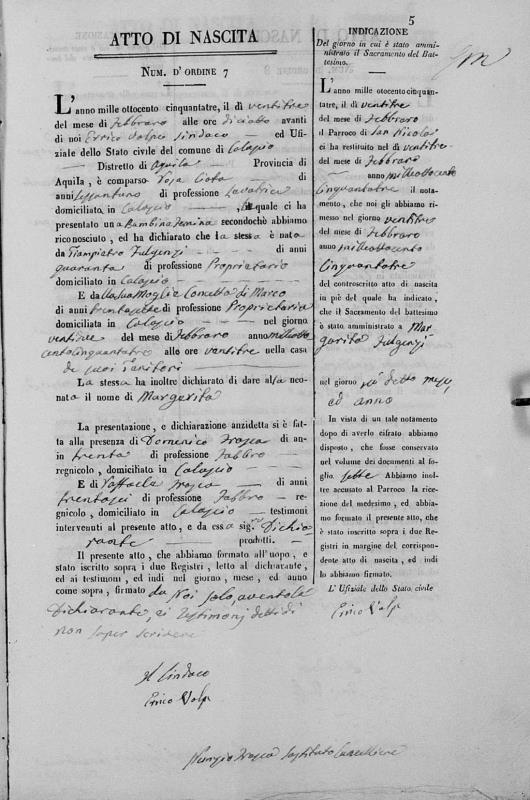 5
ATTO DI NASCITA
NUM. D'ORDINE 7
L'anno mille ottocento cinquantatre, il dì ventitre
del mese di Febbraro alle ore diciotto avanti
di noi Errico Volpe Sindaco — ed Ufi-
ziale dello Stato civile del comune di Calascio
— Distretto di Aquila — Provincia di
Aquila, è comparso
anni Sessantuno di professione Levatrice
domiciliato in Calascio — , la quale ci ha
presentato una Bambina Femina secondochè abbiamo
riconosciuto, ed ha dichiarato che la stessa è nata
da Giampietro Fulgenzj — di anni
quaranta di professione Proprietario
domiciliato in Calascio —
E da Moglie Concetta di Marco
di anni di professione Proprietaria
domiciliata in Calascio — nel giorno
ventidue del mese di Febbraro anno milleotto
centocinquantatre alle ore ventitre nella casa
de suoi Genitori —
La stessa ha inoltre dichiarato di dare alla neo-
nata il nome di Margarita
La presentazione, e dichiarazione anzidetta si è fat-
ta alla presenza di Domenico Frasca di an-
in trenta di professione Fabbro —
regnicolo, domiciliato in Calascio —
E di Raffaele Frasca — di anni
trentasei di professione Fabbro — re-
gnicolo, domiciliato in Calascio — testimoni
intervenuti al presente atto, e da essa sig.ra Dichia
rante — prodotti. —
Il presente atto, che abbiamo formato all'uopo, e
stato iscritto sopra i due Registri, letto al dichiarante,
ed ai testimoni, ed indi nel giorno, mese, ed anno
come sopra, firmato da Noi solo, avendola
Dichiarante, ei Testimonj detto di
non saper scrivere
Il Sindaco
Errico Volpe
Nunzio Frasca Sostituto Cancelliere
INDICAZIONE
Del giorno in cui è stato ammi-
nistrato il Sacramento del Bat-
tesimo.
L'anno mille ottocento cinquan-
tatre, il dì ventitre
del mese di Febbraro
il Parroco di San Nicola
ci ha restituito nel dì ventitre
del mese di Febbraro
anno milleottocento
Cinquantatre il nota-
mento, che noi gli abbiamo ri-
messo nel giorno ventitre
del mese di Febbraro
anno milleottocento
Cinquantatre
del controscritto atto di nascita
in piè del quale ha indicato,
che il Sacramento del battesimo
è stato amministrato a Mar
garita Fulgenzj
nel giorno detto mese,
ed anno
In vista di un tale notamento
dopo di averlo cifrato abbiamo
disposto, che fusse conservato
nel volume dei documenti al fo-
glio. sette Abbiamo inol-
tre accusato al Parroco la rice-
zione del medesimo, ed ab-
biamo formato il presente atto, che
è stato iscritto sopra i due Re-
gistri in margine del corrispon-
dente atto di nascita, ed indi
lo abbiamo firmato.
L' Ufiziale dello Stato civile
Errico Volpe